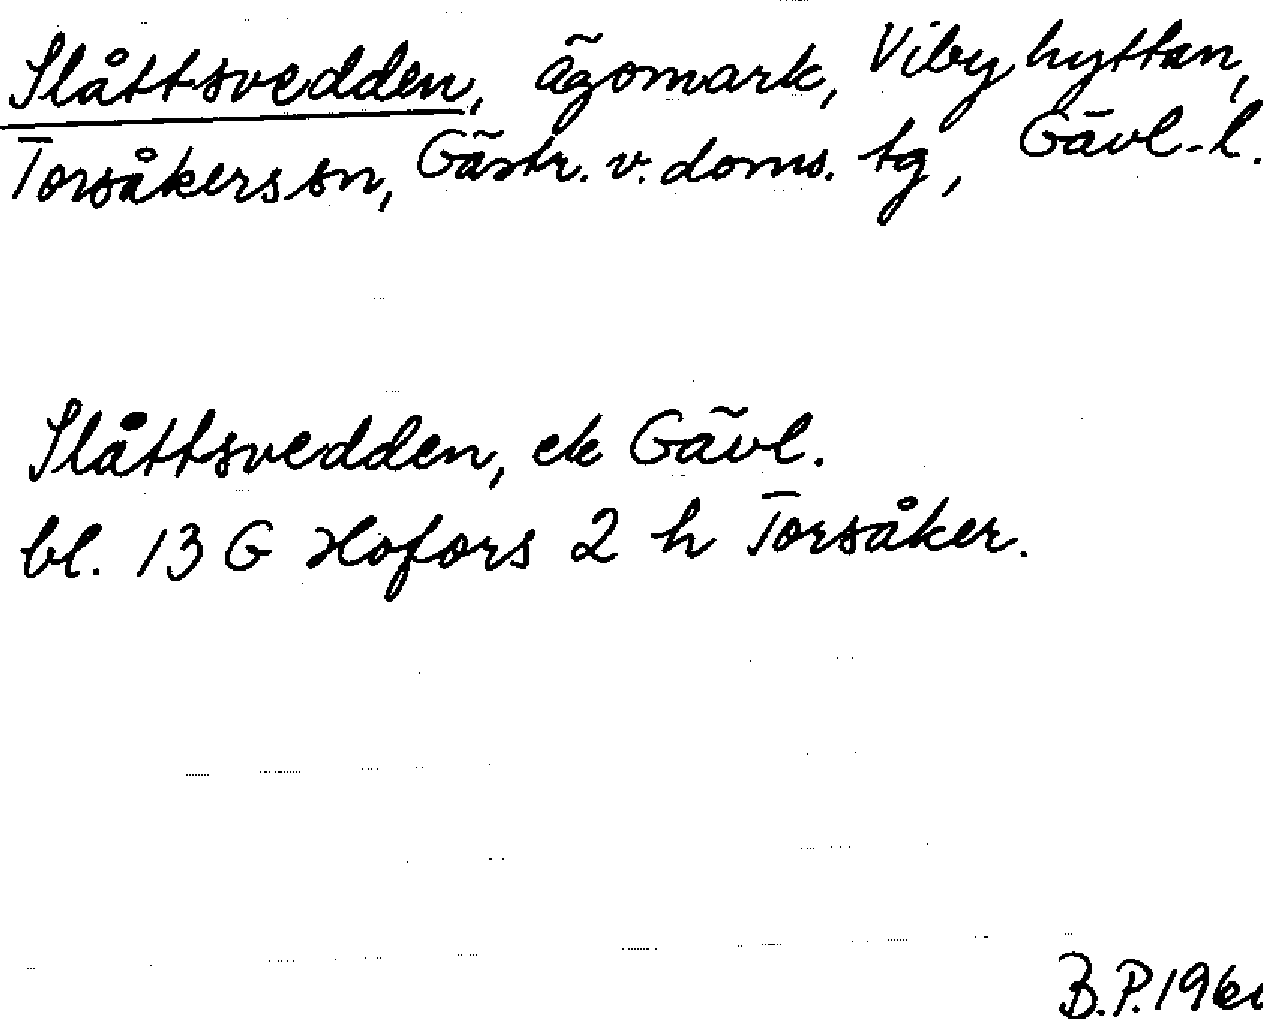 Slåttsvedden, ägomark, Vibyhyttan,
Torsåkers sn, Gästr. v. doms. tg, Gävl-l.
Slåttsvedden, ek Gävl.
bl. 13 G Hofors 2 h Torsåker.
B.P.